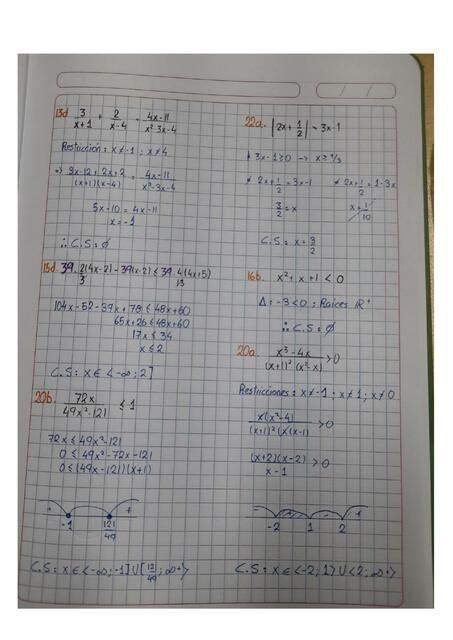 13d 3/(x+1) + 2/(x-4) = (4x-11)/(x²-3x-4)
Restricción: x≠-1 ; x≠4
⇒ (3x-12+2x+2)/((x+1)(x-4)) = (4x-11)/(x²-3x-4)
5x-10 = 4x-11
x = -1
∴ C.S = ∅
13d. 39. 2(4x-2)/3 - 39(x-2) ≤ 39. 4(4x+5)/13
104x-52-39x+78 ≤ 48x+60
65x+26 ≤ 48x+60
17x ≤ 34
x ≤ 2
C.S: x ∈ <-∞; 2]
20b. 72x/(49x²-121) ≤ 1
72x ≤ 49x²-121
0 ≤ 49x²-72x-121
0 ≤ (49x-121)(x+1)
+ - +
-1 121/49
C.S: x ∈ <-∞; -1] U [12/49 ; ∞+>
22a. |2x + 1/2| = 3x-1
3x-1 ≥ 0 → x ≥ 1/3
* 2x + 1/2 = 3x-1 * 2x + 1/2 = 1-3x
3/2 = x x = 1/10
C.S: x = 3/2
16b. x² + x + 1 < 0
Δ: -3 < 0 ; Raíces
∴ C.S: ∅
20a. (x³-4x)/((x+1)²(x²-x)) > 0
Restricciones: x≠-1 ; x≠1 ; x≠0
x(x²-4)/((x+1)²(x)(x-1)) > 0
(x+2)(x-2)/(x-1) > 0
- + - +
-2 1 2
C.S: x ∈ <-2; 1> U <2; ∞+>